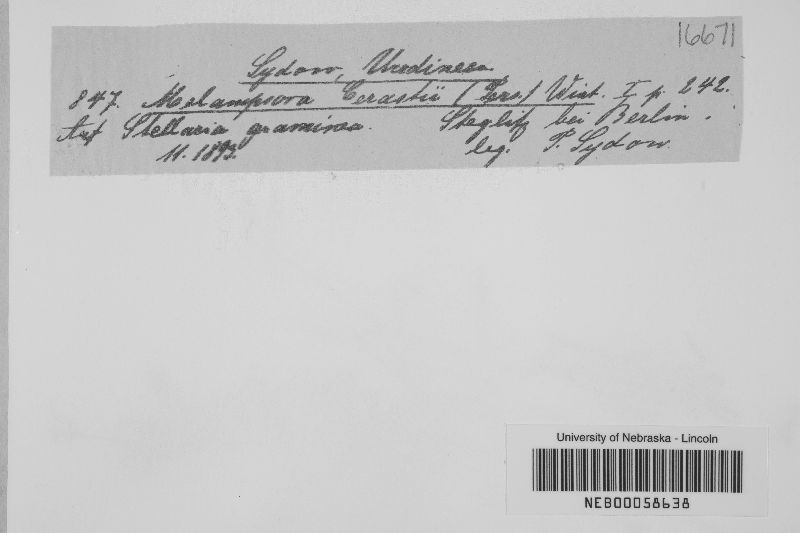 16671
Sydow, Uredineen.
847. Melampsora Cerastii (Pers) Wint. I p. 242.
Auf Stellaria graminea. Steglitz bei Berlin.
11. 1893. leg. P. Sydow.
University of Nebraska - Lincoln
NEB00058638